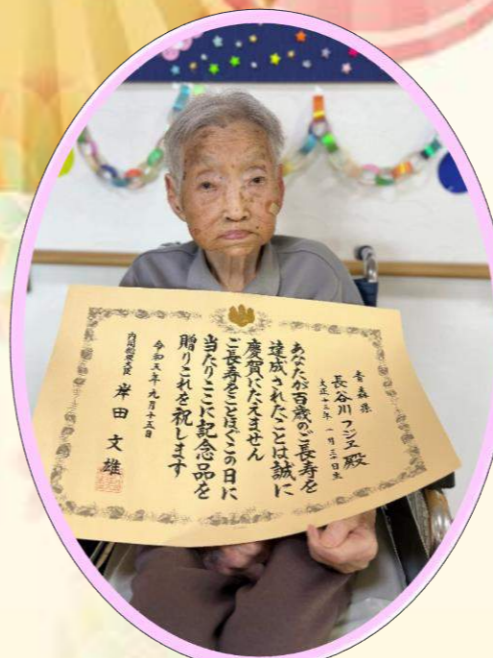 青森県
長谷川フジヱ 殿
大正十三年 一月
あなたが百歳のご長寿を
達成されたことは誠に
慶賀にたえません
ご長寿をことほぐこの日に
当たりここに記念品を
贈りこれを祝します
令和五年九月十五日
内閣総理大臣 岸田文雄